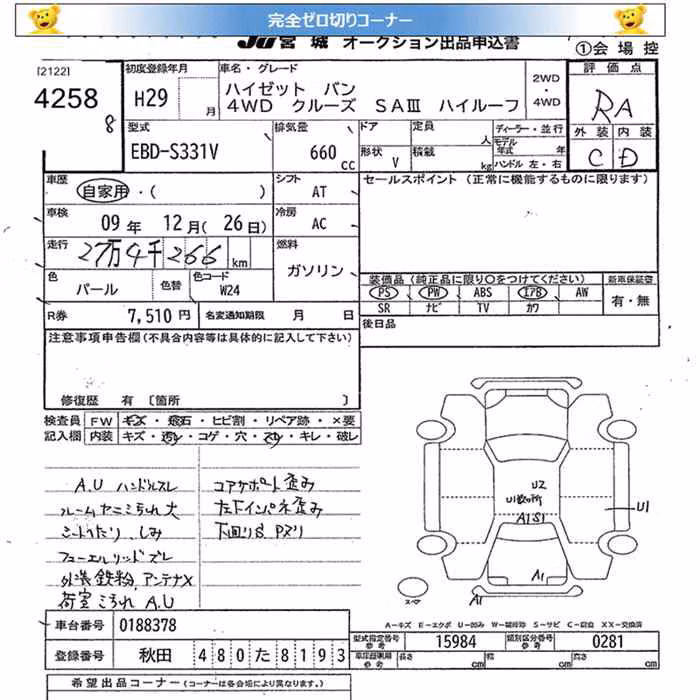 完全ゼロ切りコーナー
JU宮城 オークション出品申込書
①会場控
[2122]
4258
8
初度登録年月
H29 月
車名・グレード
ハイゼット バン
4WD クルーズ SAⅢ ハイルーフ
2WD
・
4WD
評価点
RA
外装 内装
C D
型式
EBD-S331V
排気量
660 cc
ドア
定員
人
形状
V
積載
kg
ディーラー・並行
モデル年式 年
ハンドル 左・右
車歴
自家用・( )
シフト
AT
セールスポイント (正常に機能するものに限ります)
車検
09年 12月(26日)
冷房
AC
走行
27万4千266km
燃料
ガソリン
色
パール
色替
色コード
W24
装備品(純正品に限り○をつけてください)
新車保証書
PS PW ABS エアB AW
有・無
SR ナビ TV カワ
R券 7,510円
名変通知期限 月 日
後日品
注意事項申告欄(不具合内容等は具体的に記入して下さい)
修復歴 有〔箇所 〕
検査員 FW キズ・飛石・ヒビ割・リペア跡・×要
記入欄 内装 キズ・汚レ・コゲ・穴・スレ・キレ・破レ
A.U ハンドルスレ
シートへたり、しみ
フューエルリッドズレ
外装鉄粉,アンテナX
荷室こ汚れ A.U
コアサポート歪み
左下インパネ歪み
下回りS Pズリ
U2
A1S1
U1
A1
A1
スペア
A-キズ E-エクボ U-凹み W-補修跡 S-サビ C-腐食 XX-交換済
車台番号 0188378
登録番号 秋田 480た8193
型式指定番号 参考 15984
類別区分番号 参考 0281
長さ cm 幅 cm 高さ cm
希望出品コーナー(コーナーは各会場により異なります)